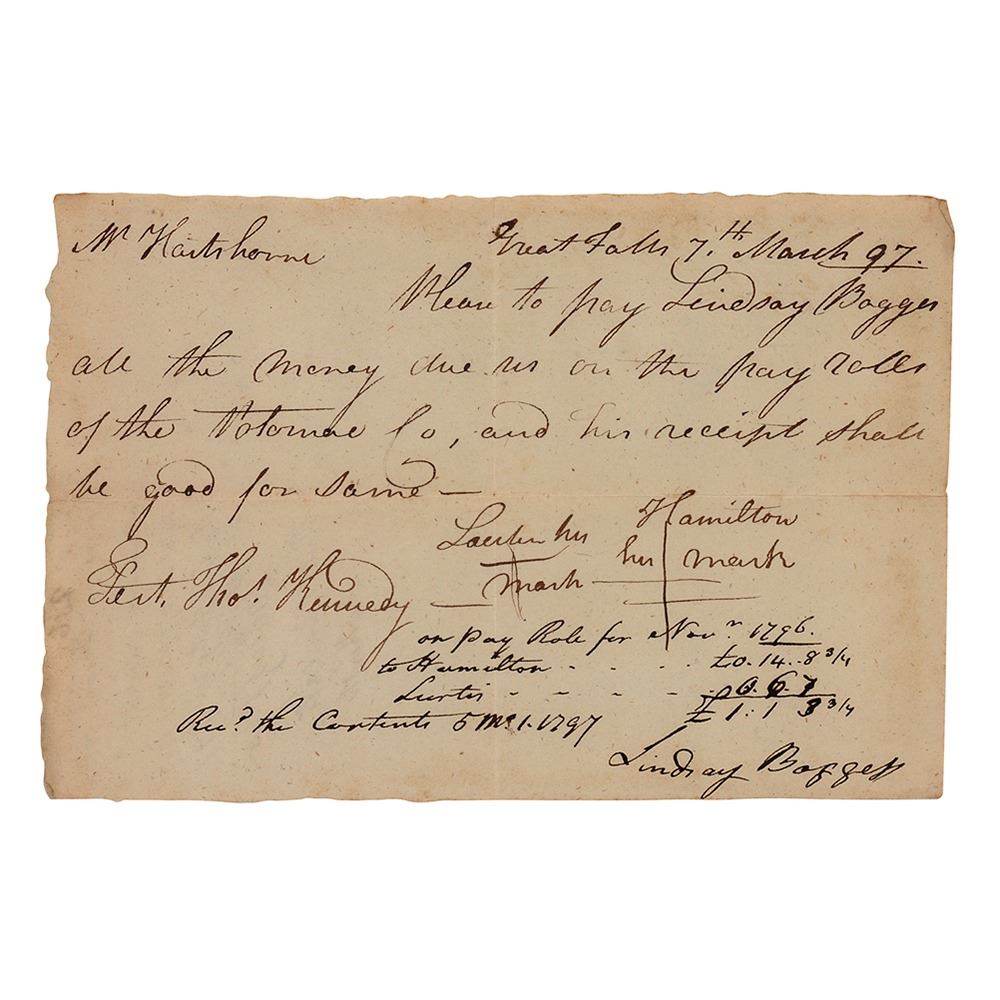 Mr Hartshorne Great Falls 7th March 97.
Please to pay Lindsay Bogges
all the money due us on the pay rolls
of the Potomac Co, and his receipt shall
be good for same —
his Hamilton
mark his mark
Test, Thos. Kennedy
on pay Role for Novr. 1796.
to Hamilton - - - £0.14..8 3/4
Curtis - - - - 0.6.7
£1:1 3 3/4
Recd. the Contents 5 Mo 1. 1797
Lindsay Boggess